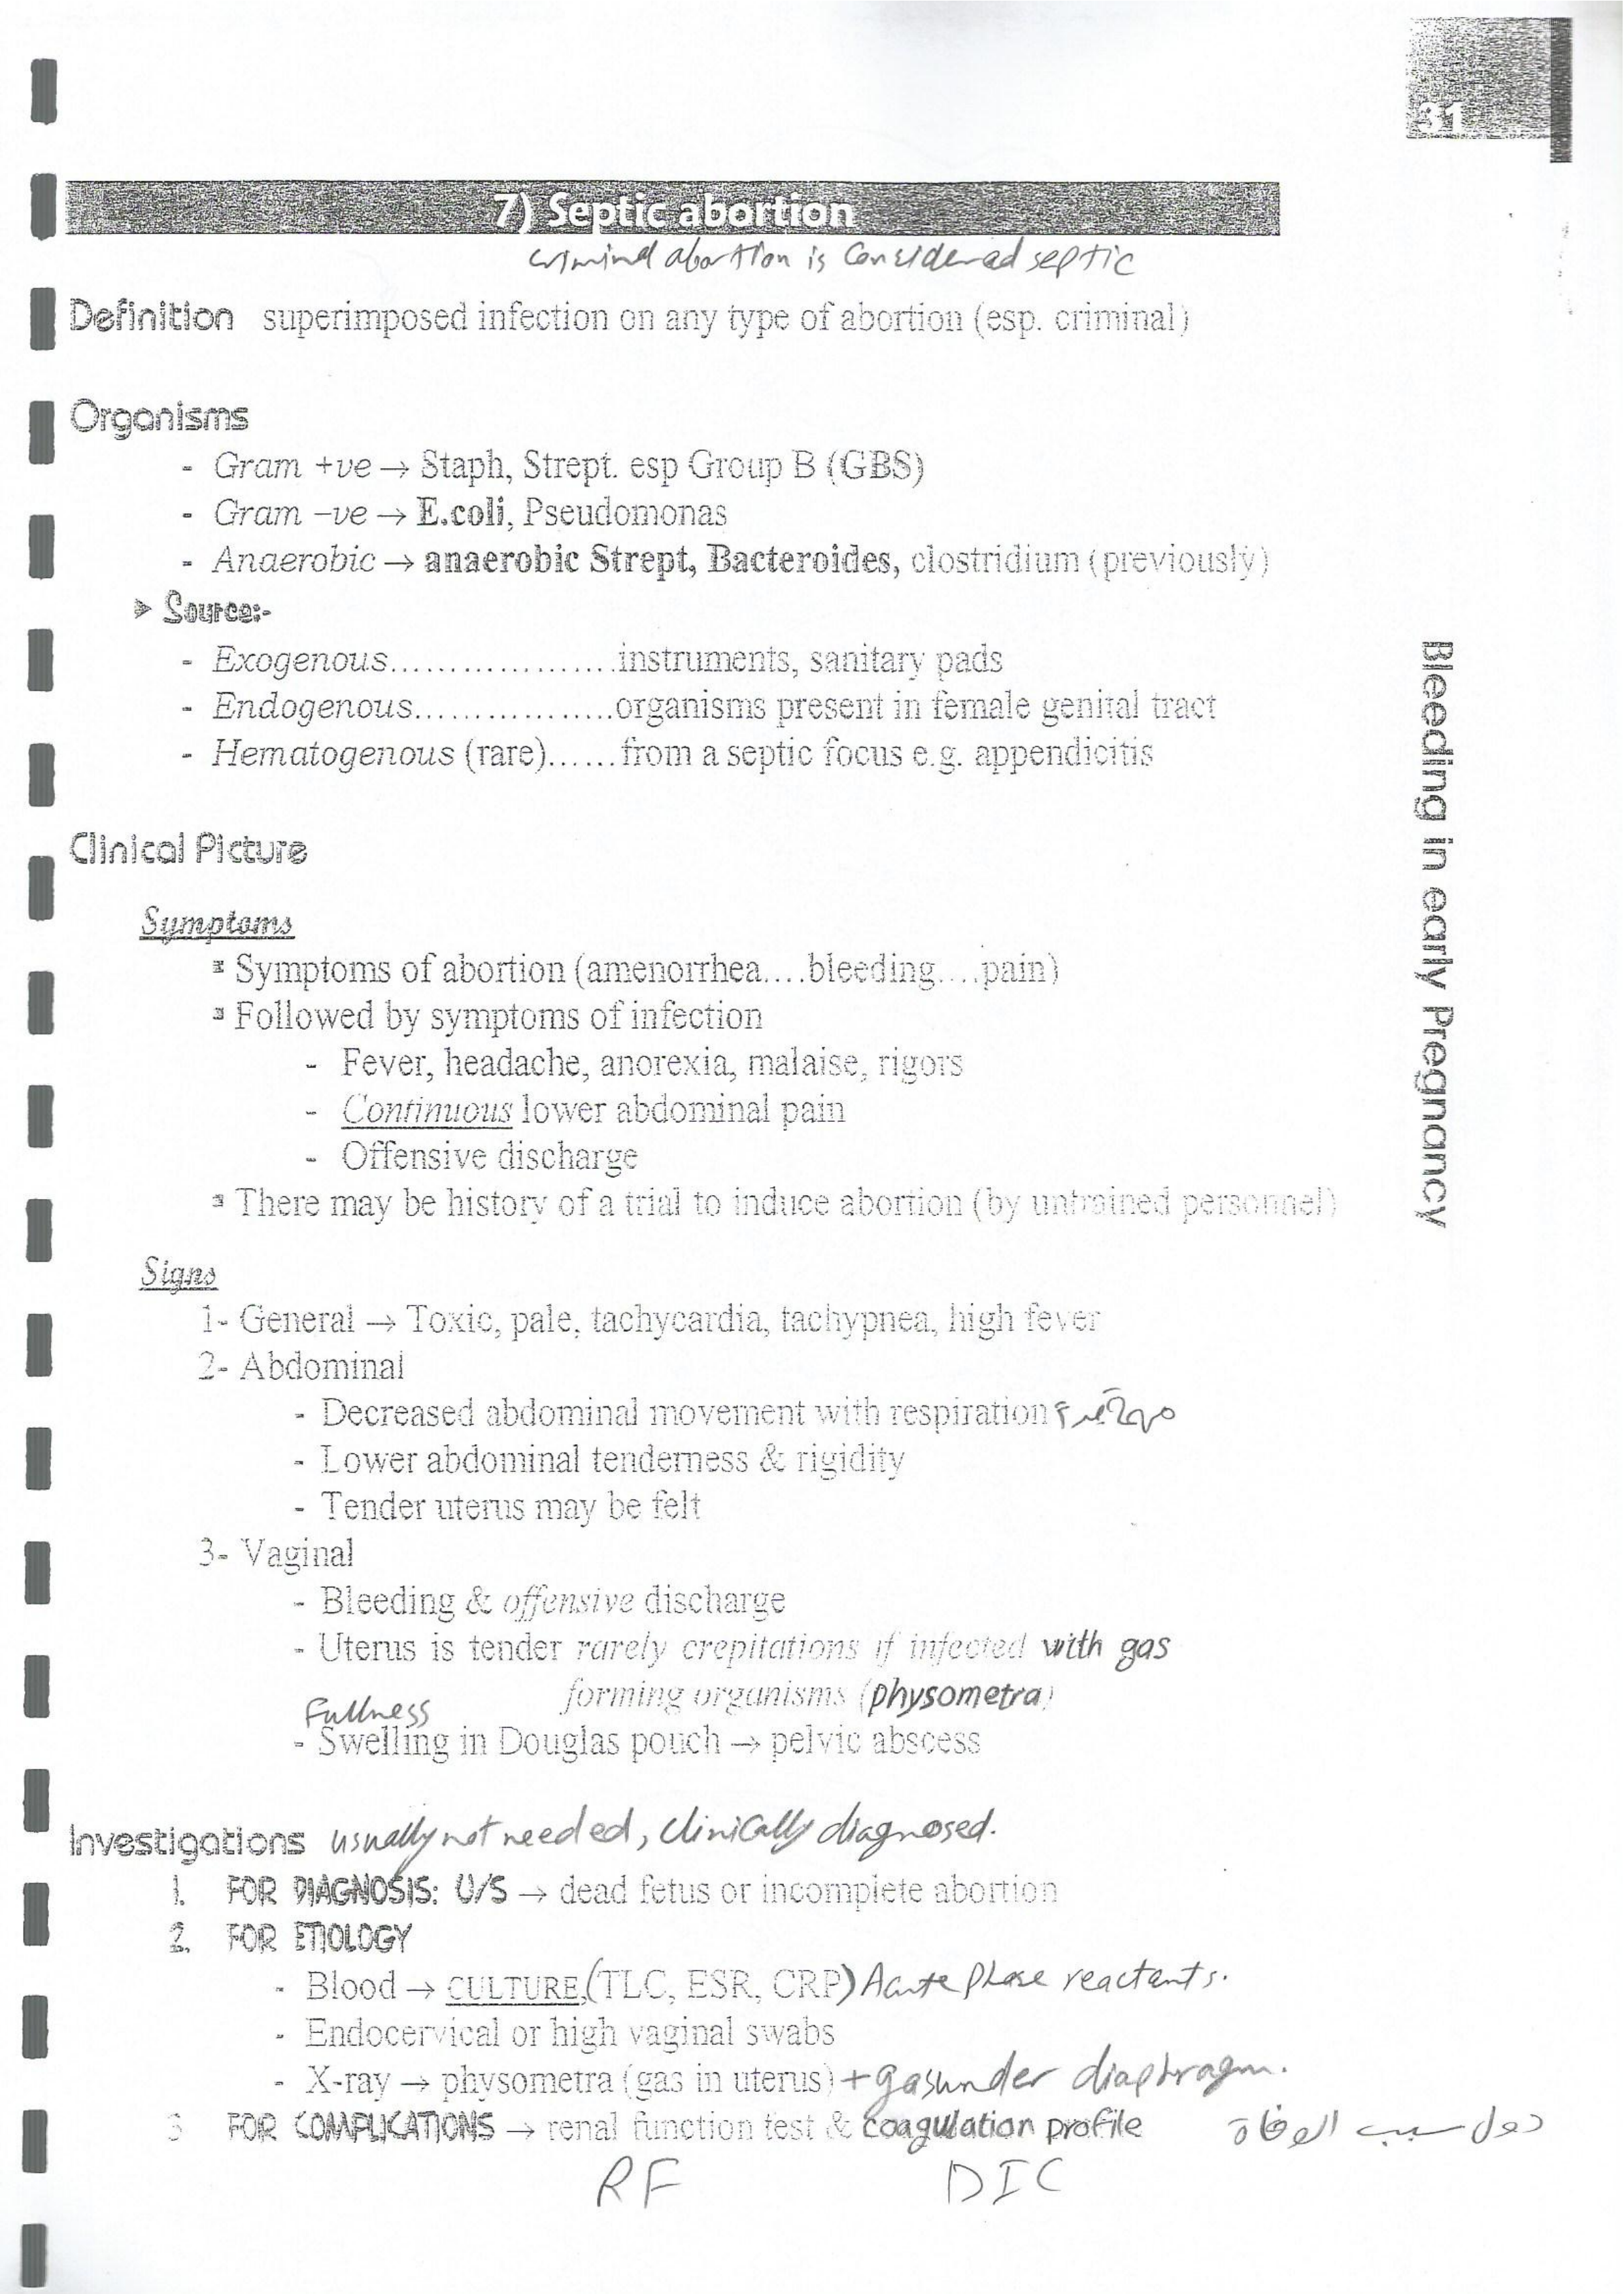 31
7) Septic abortion
criminal abortion is considered septic
Definition superimposed infection on any type of abortion (esp. criminal)
Organisms
- Gram +ve → Staph, Strept. esp Group B (GBS)
- Gram –ve → E.coli, Pseudomonas
- Anaerobic → anaerobic Strept, Bacteroides, clostridium (previously)
➤ Source:-
- Exogenous...................instruments, sanitary pads
- Endogenous.................organisms present in female genital tract
- Hematogenous (rare)......from a septic focus e.g. appendicitis
Clinical Picture
Symptoms
▪ Symptoms of abortion (amenorrhea....bleeding....pain)
▪ Followed by symptoms of infection
- Fever, headache, anorexia, malaise, rigors
- Continuous lower abdominal pain
- Offensive discharge
▪ There may be history of a trial to induce abortion (by untrained personnel)
Signs
1- General → Toxic, pale, tachycardia, tachypnea, high fever
2- Abdominal
- Decreased abdominal movement with respiration
- Lower abdominal tenderness & rigidity
- Tender uterus may be felt
3- Vaginal
- Bleeding & offensive discharge
- Uterus is tender rarely crepitations if infected with gas
forming organisms (physometra)
Fullness
- Swelling in Douglas pouch → pelvic abscess
Investigations usually not needed, clinically diagnosed.
1. FOR DIAGNOSIS: U/S → dead fetus or incomplete abortion
2. FOR ETIOLOGY
- Blood → CULTURE,(TLC, ESR, CRP) Acute phase reactants.
- Endocervical or high vaginal swabs
- X-ray → physometra (gas in uterus) + gas under diaphragm.
3 FOR COMPLICATIONS → renal function test & coagulation profile دول سبب الوفاة
RF DIC
Bleeding in early Pregnancy